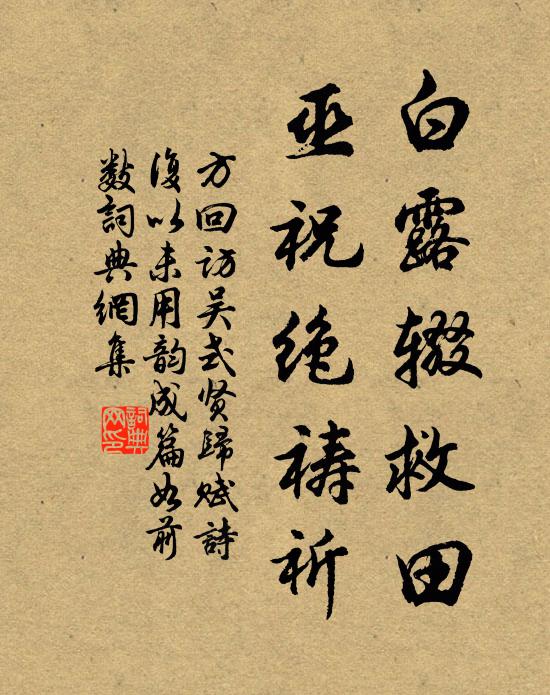 白露辍救田
巫祝绝祷祈
方回访吴式贤歸赋詩
復以未用韵成篇如前
数詞典網集
詞典
网印